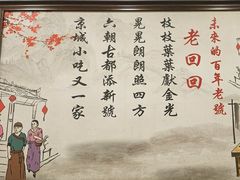 未來的百年老號
老回回
枝枝葉葉獻金光
晃晃朗朗照四方
六朝古都添新號
京城小吃又一家